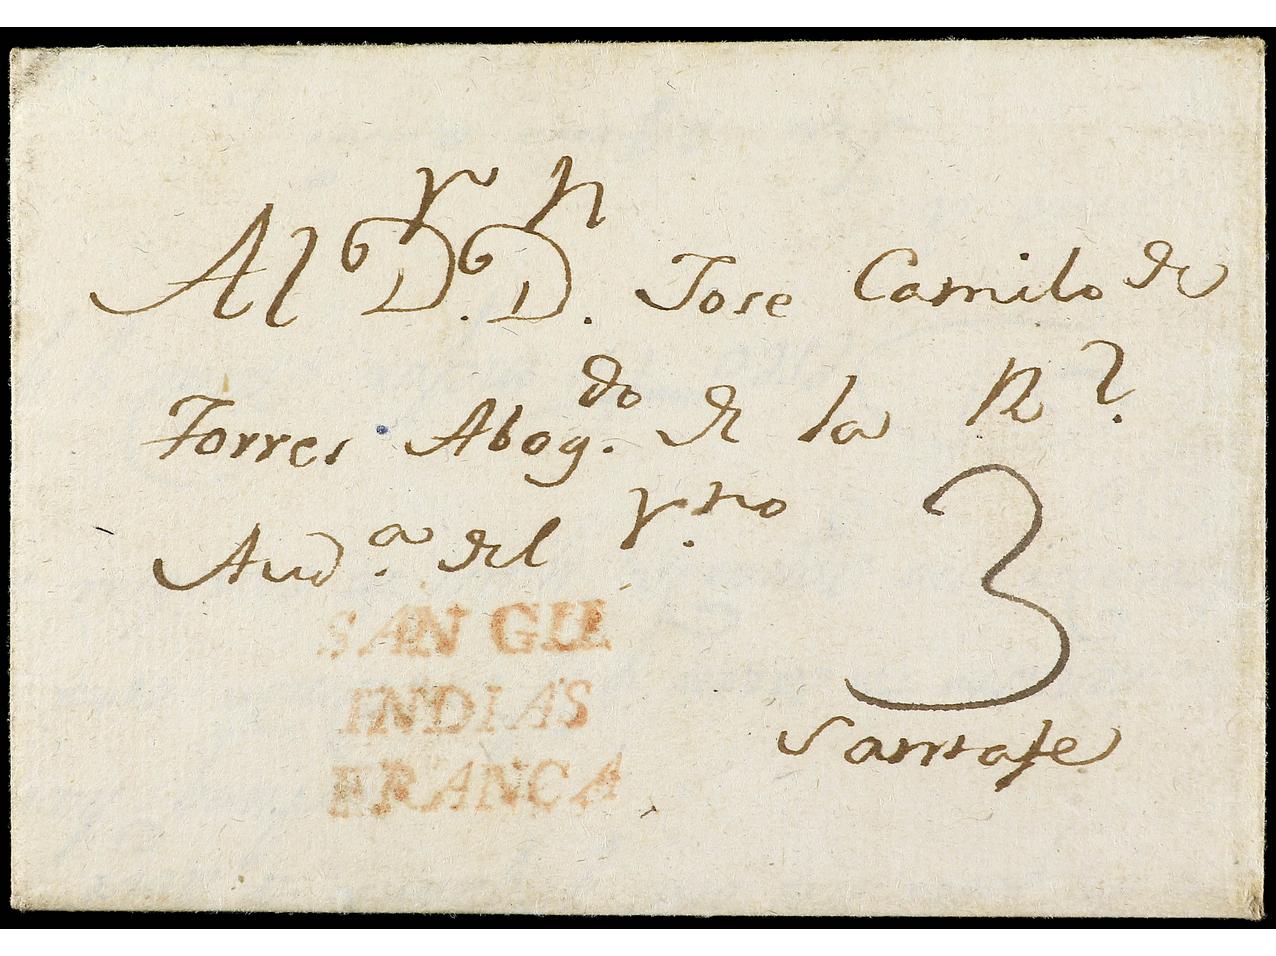 Al D.r D.n Jose Camilo de
Torres Abog.do de la Rl.
Aud.a del r.no
3
SAN GIL
INDIAS
FRANCA
Santafe